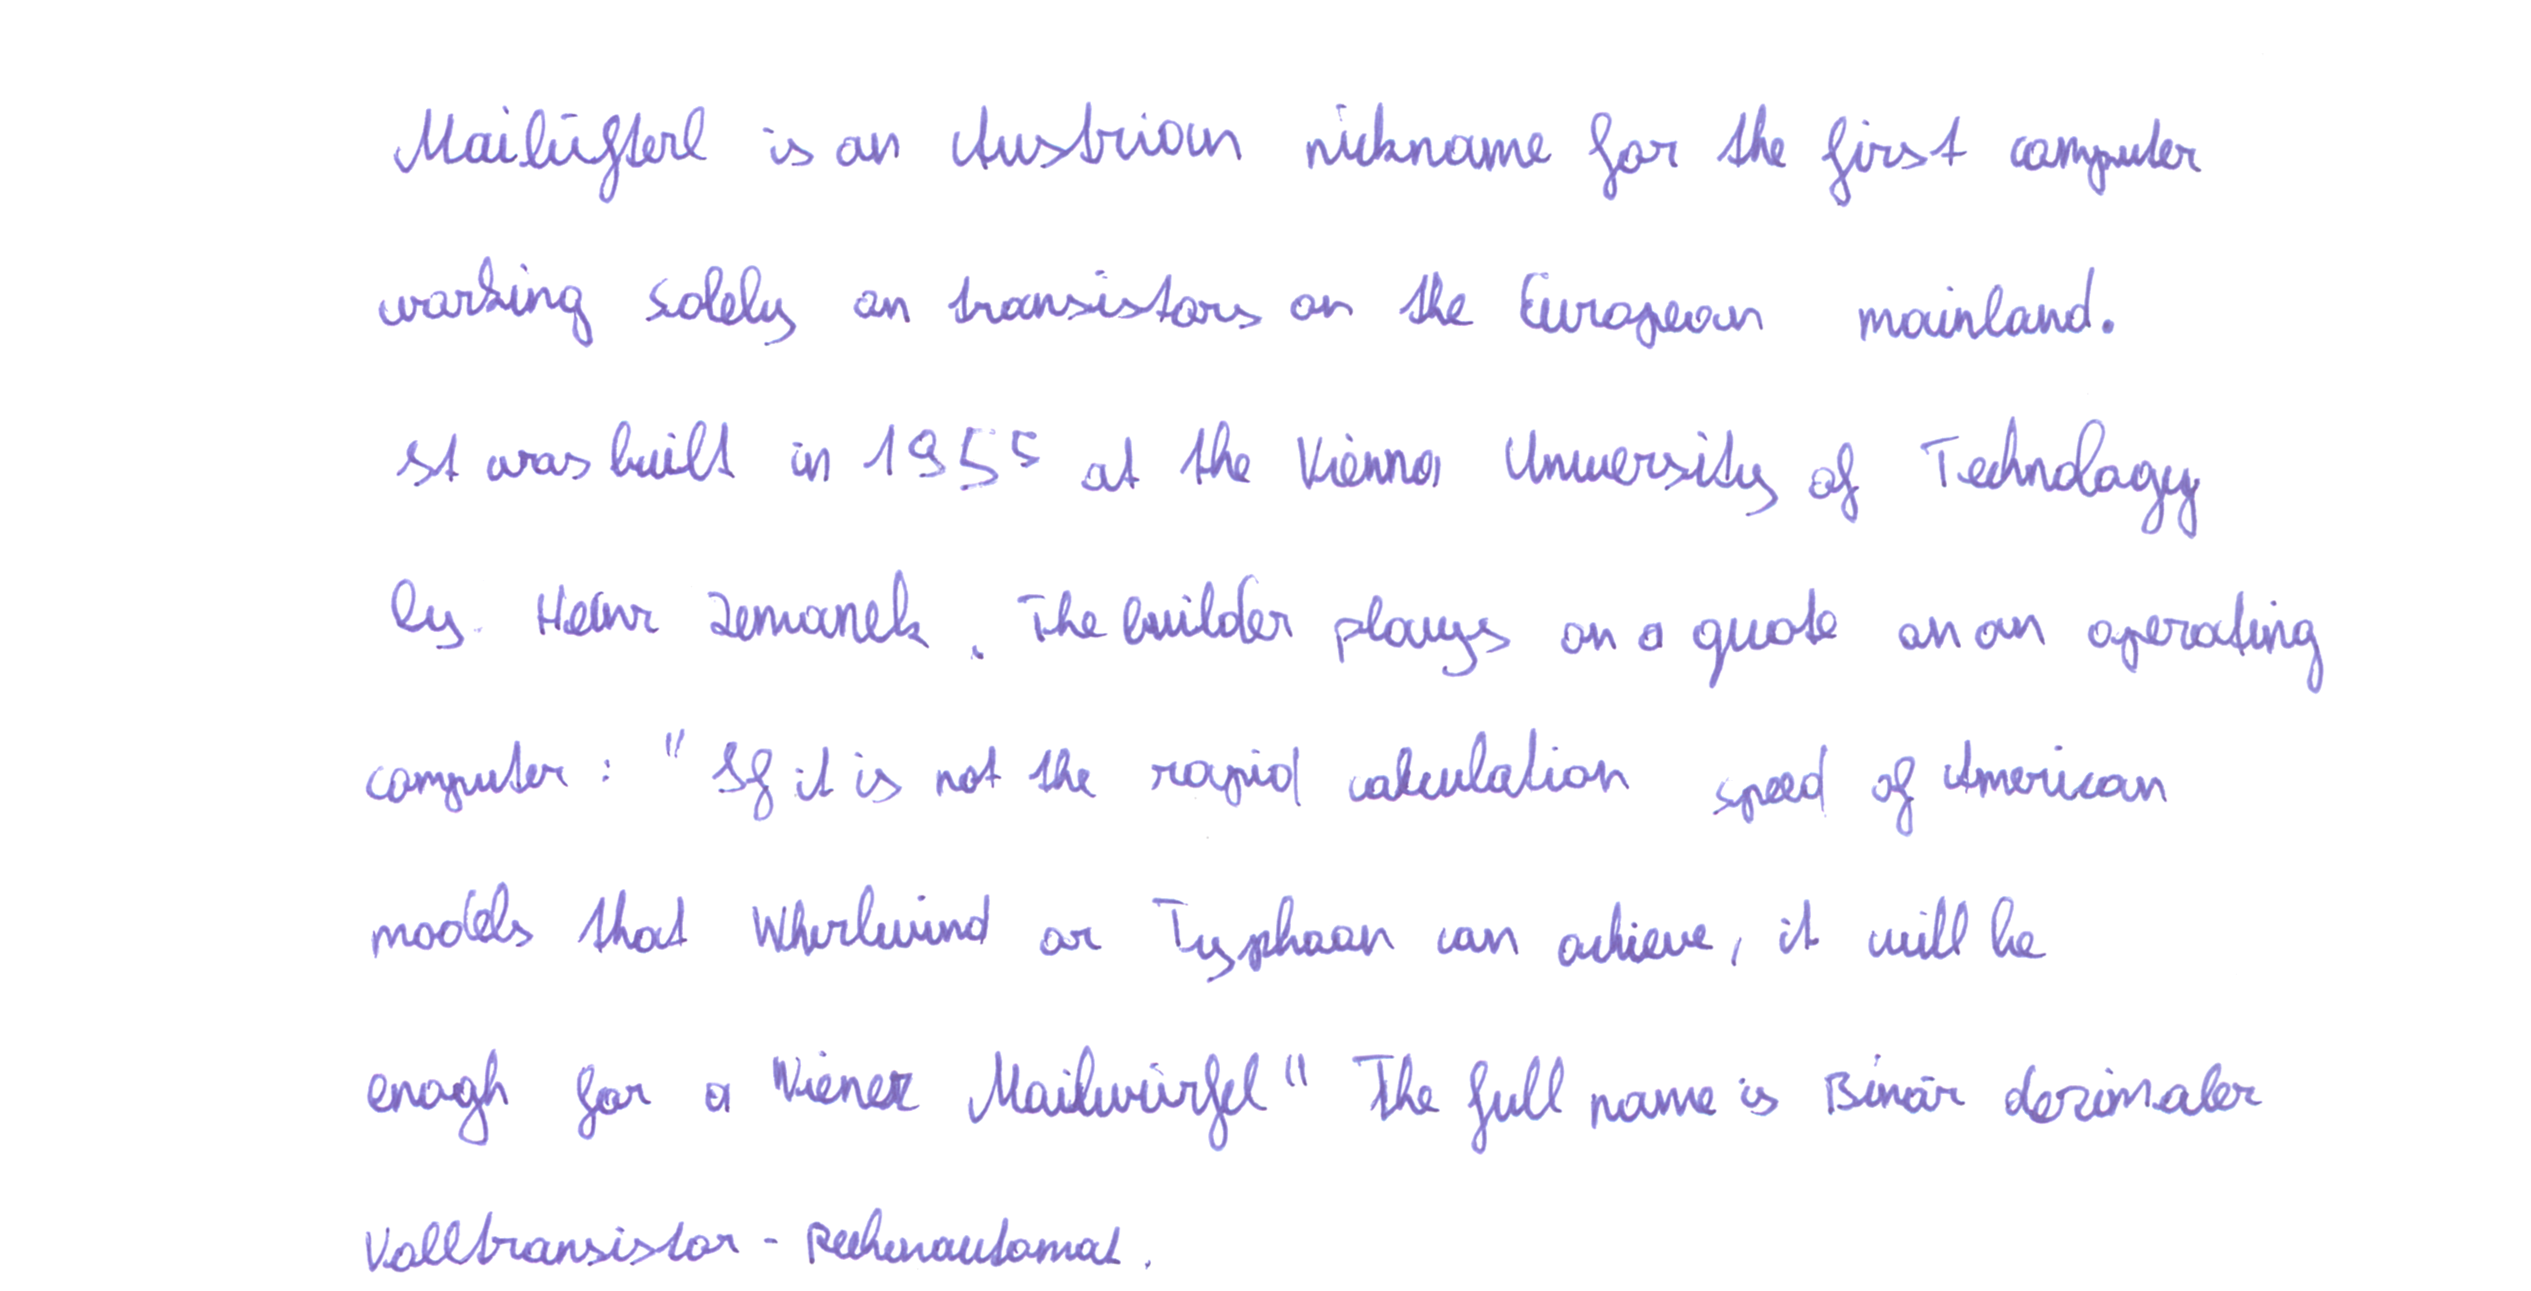 Mailüfterl is an Austrian nickname for the first computer
working solely on transistors on the European mainland.
It was built in 1955 at the Vienna University of Technology
by Heinz Zemanek. The builder plays on a quote on an operating
computer: "If it is not the rapid calculation speed of American
models that Whirlwind or Typhoon can achieve, it will be
enogh for a Wiener Mailwürfel" The full name is Binär dezimaler
Volltransistor-Rechenautomat.